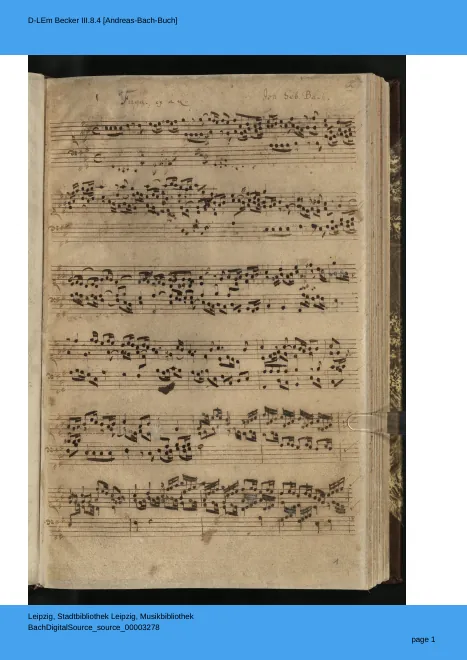 D-LEm Becker III.8.4 [Andreas-Bach-Buch]
Leipzig, Stadtbibliothek Leipzig, Musikbibliothek
BachDigitalSource_source_00003278
page 1